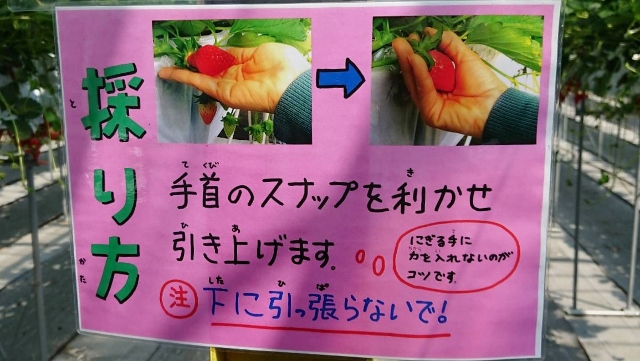 採り方
手首のスナップを利かせ
引き上げます。
にぎる手に
力を入れないのが
コツです。
注 下に引っ張らないで!